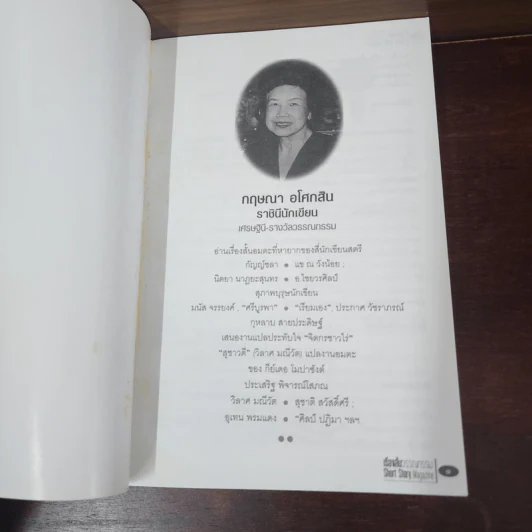 กฤษณา อโศกสิน
ราชินีนักเขียน
เศรษฐินี-รางวัลวรรณกรรม
อ่านเรื่องสั้นอมตะที่หายากของสี่นักเขียนสตรี
กัญญ์ชลา ● แข ณ วังน้อย ;
นิตยา นาฏยะสุนทร ● อ.ไชยวรศิลป์
สุภาพบุรุษนักเขียน
มนัส จรรยงค์ , "ศรีบูรพา" ● "เรียมเอง", ประกาศ วัชราภรณ์
กุหลาบ สายประดิษฐ์
เสนองานแปลประทับใจ "จิตกรชาวไร่"
"สุชาวดี" (วิลาศ มณีวัต) แปลงานอมตะ
ของ กีย์เดอ โมปาซังต์
ประเสริฐ พิจารณ์โสภณ
วิลาศ มณีวัต ● สุชาติ สวัสดิ์ศรี ;
อุเทน พรมแดง ● "ศิลป์ ปฏิมา ฯลฯ
Short Story Magazine